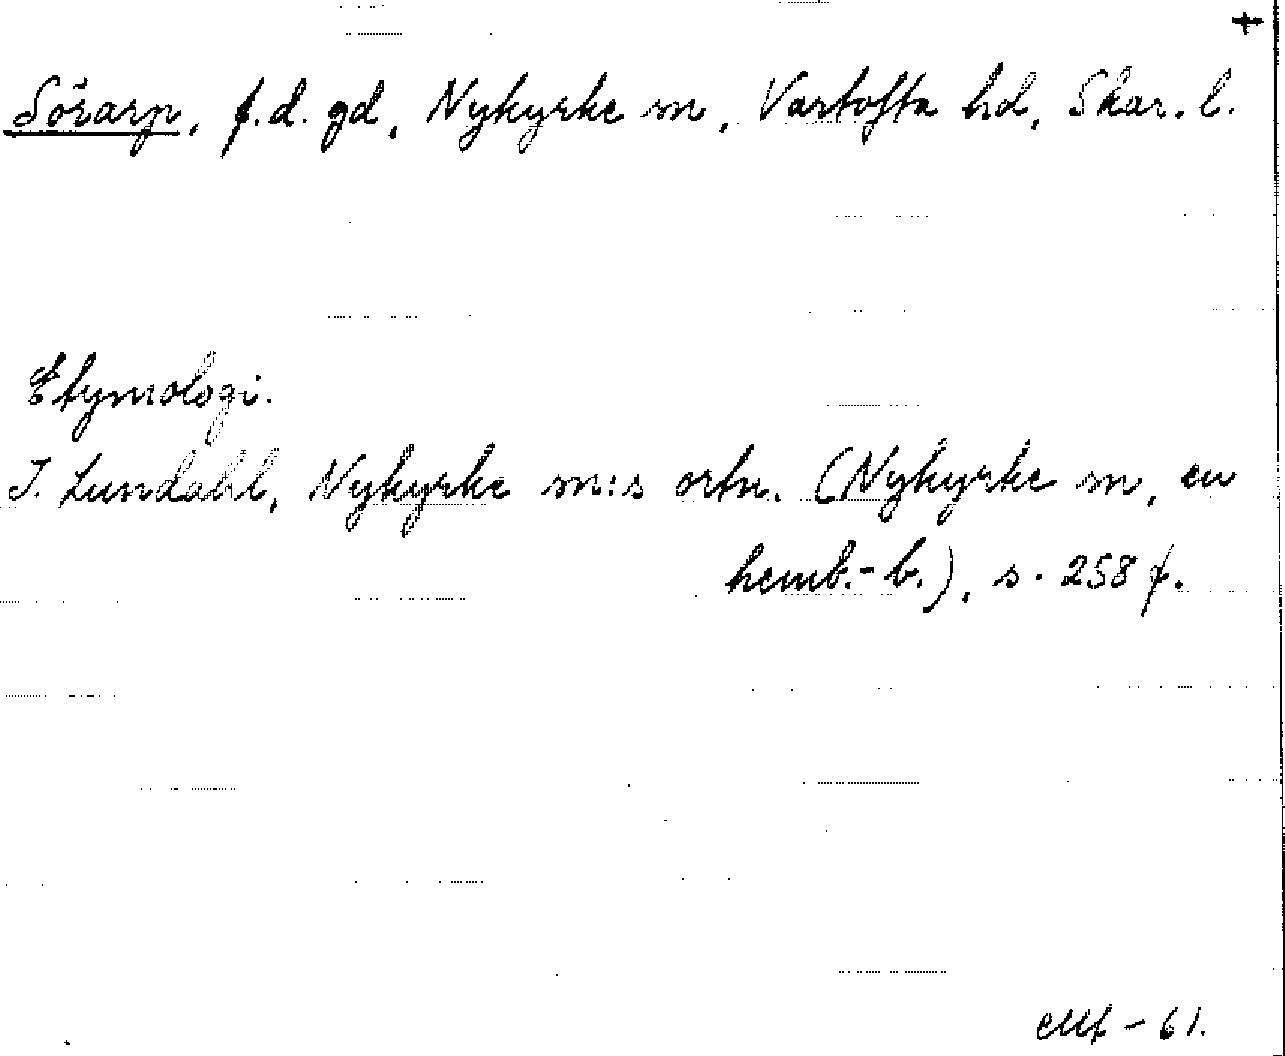 +
Sörarp, f.d. gd, Nykyrke sn, Vartofta hd, Skar. l.
Etymologi.
I. Lundahl, Nykyrke sn:s ortn. (Nykyrke sn, en
hemb.-b.), s. 258 f.
- 61.